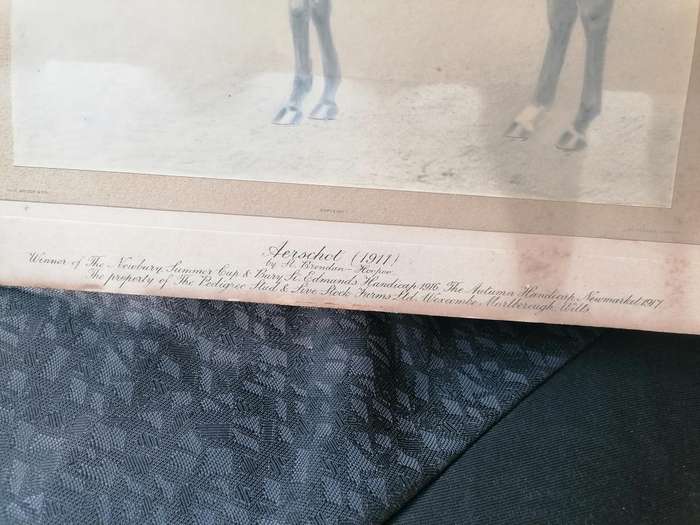 COPYRIGHT
Aerschot (1911)
by St. Brendan — Hoopoe
Winner of The Newbury Summer Cup & Bury St. Edmunds Handicap 1916, The Autumn Handicap, Newmarket, 1917
The property of The Pedigree Stud & Live Stock Farms Ltd. Wexcombe, Marlborough, Wilts